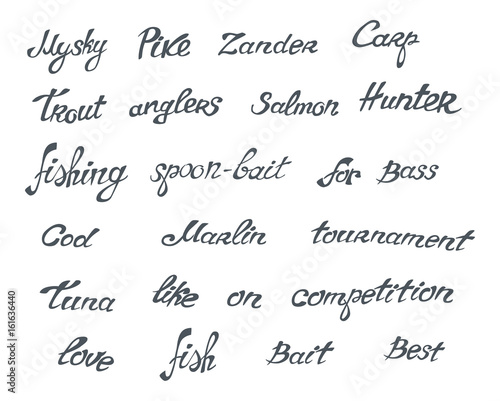 Mysky Pike Zander Carp
Trout anglers Salmon Hunter
fishing spoon-bait for Bass
Cod Marlin tournament
Tuna like on competition
love fish Bait Best
Adobe Stock | #161636440